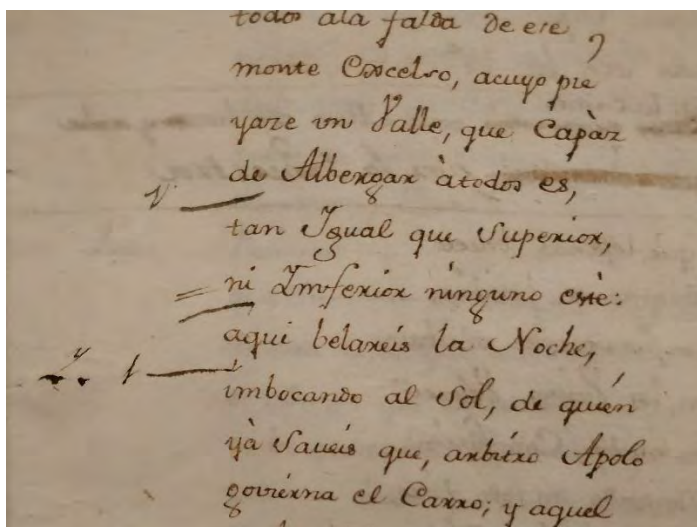 todos ala falda de ese
monte Excelso, acuyo pie
yaze un Valle, que Capàz
de Albergar àtodos es,
tan Igual que Superior,
ni Imferior ninguno estè:
aqui belareis la Noche,
imbocando al Sol, de quién
yà Saueis que, arbitro Apolo
govierna el Carro; y aquel